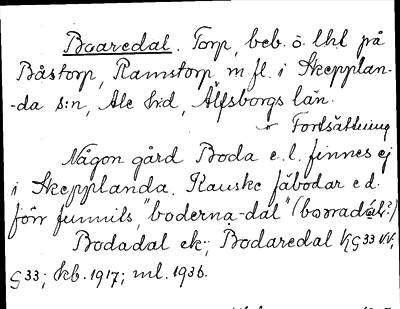 Boaredal. Torp, beb. o. lhl på
Båstorp, Ramstorp m. fl. i Skepplan-
-da s:n, Ale h:d, Älfsborgs län.
Fortsättning
Någon gård Boda e. l. finnes ej
i Skepplanda. Kanske fäbodar e d.
förr funnits, "boderna-dal" (borradal?)
Bodadal ek.; Bodaredal VG33 VV,
G33; kb. 1917; ml. 1936.